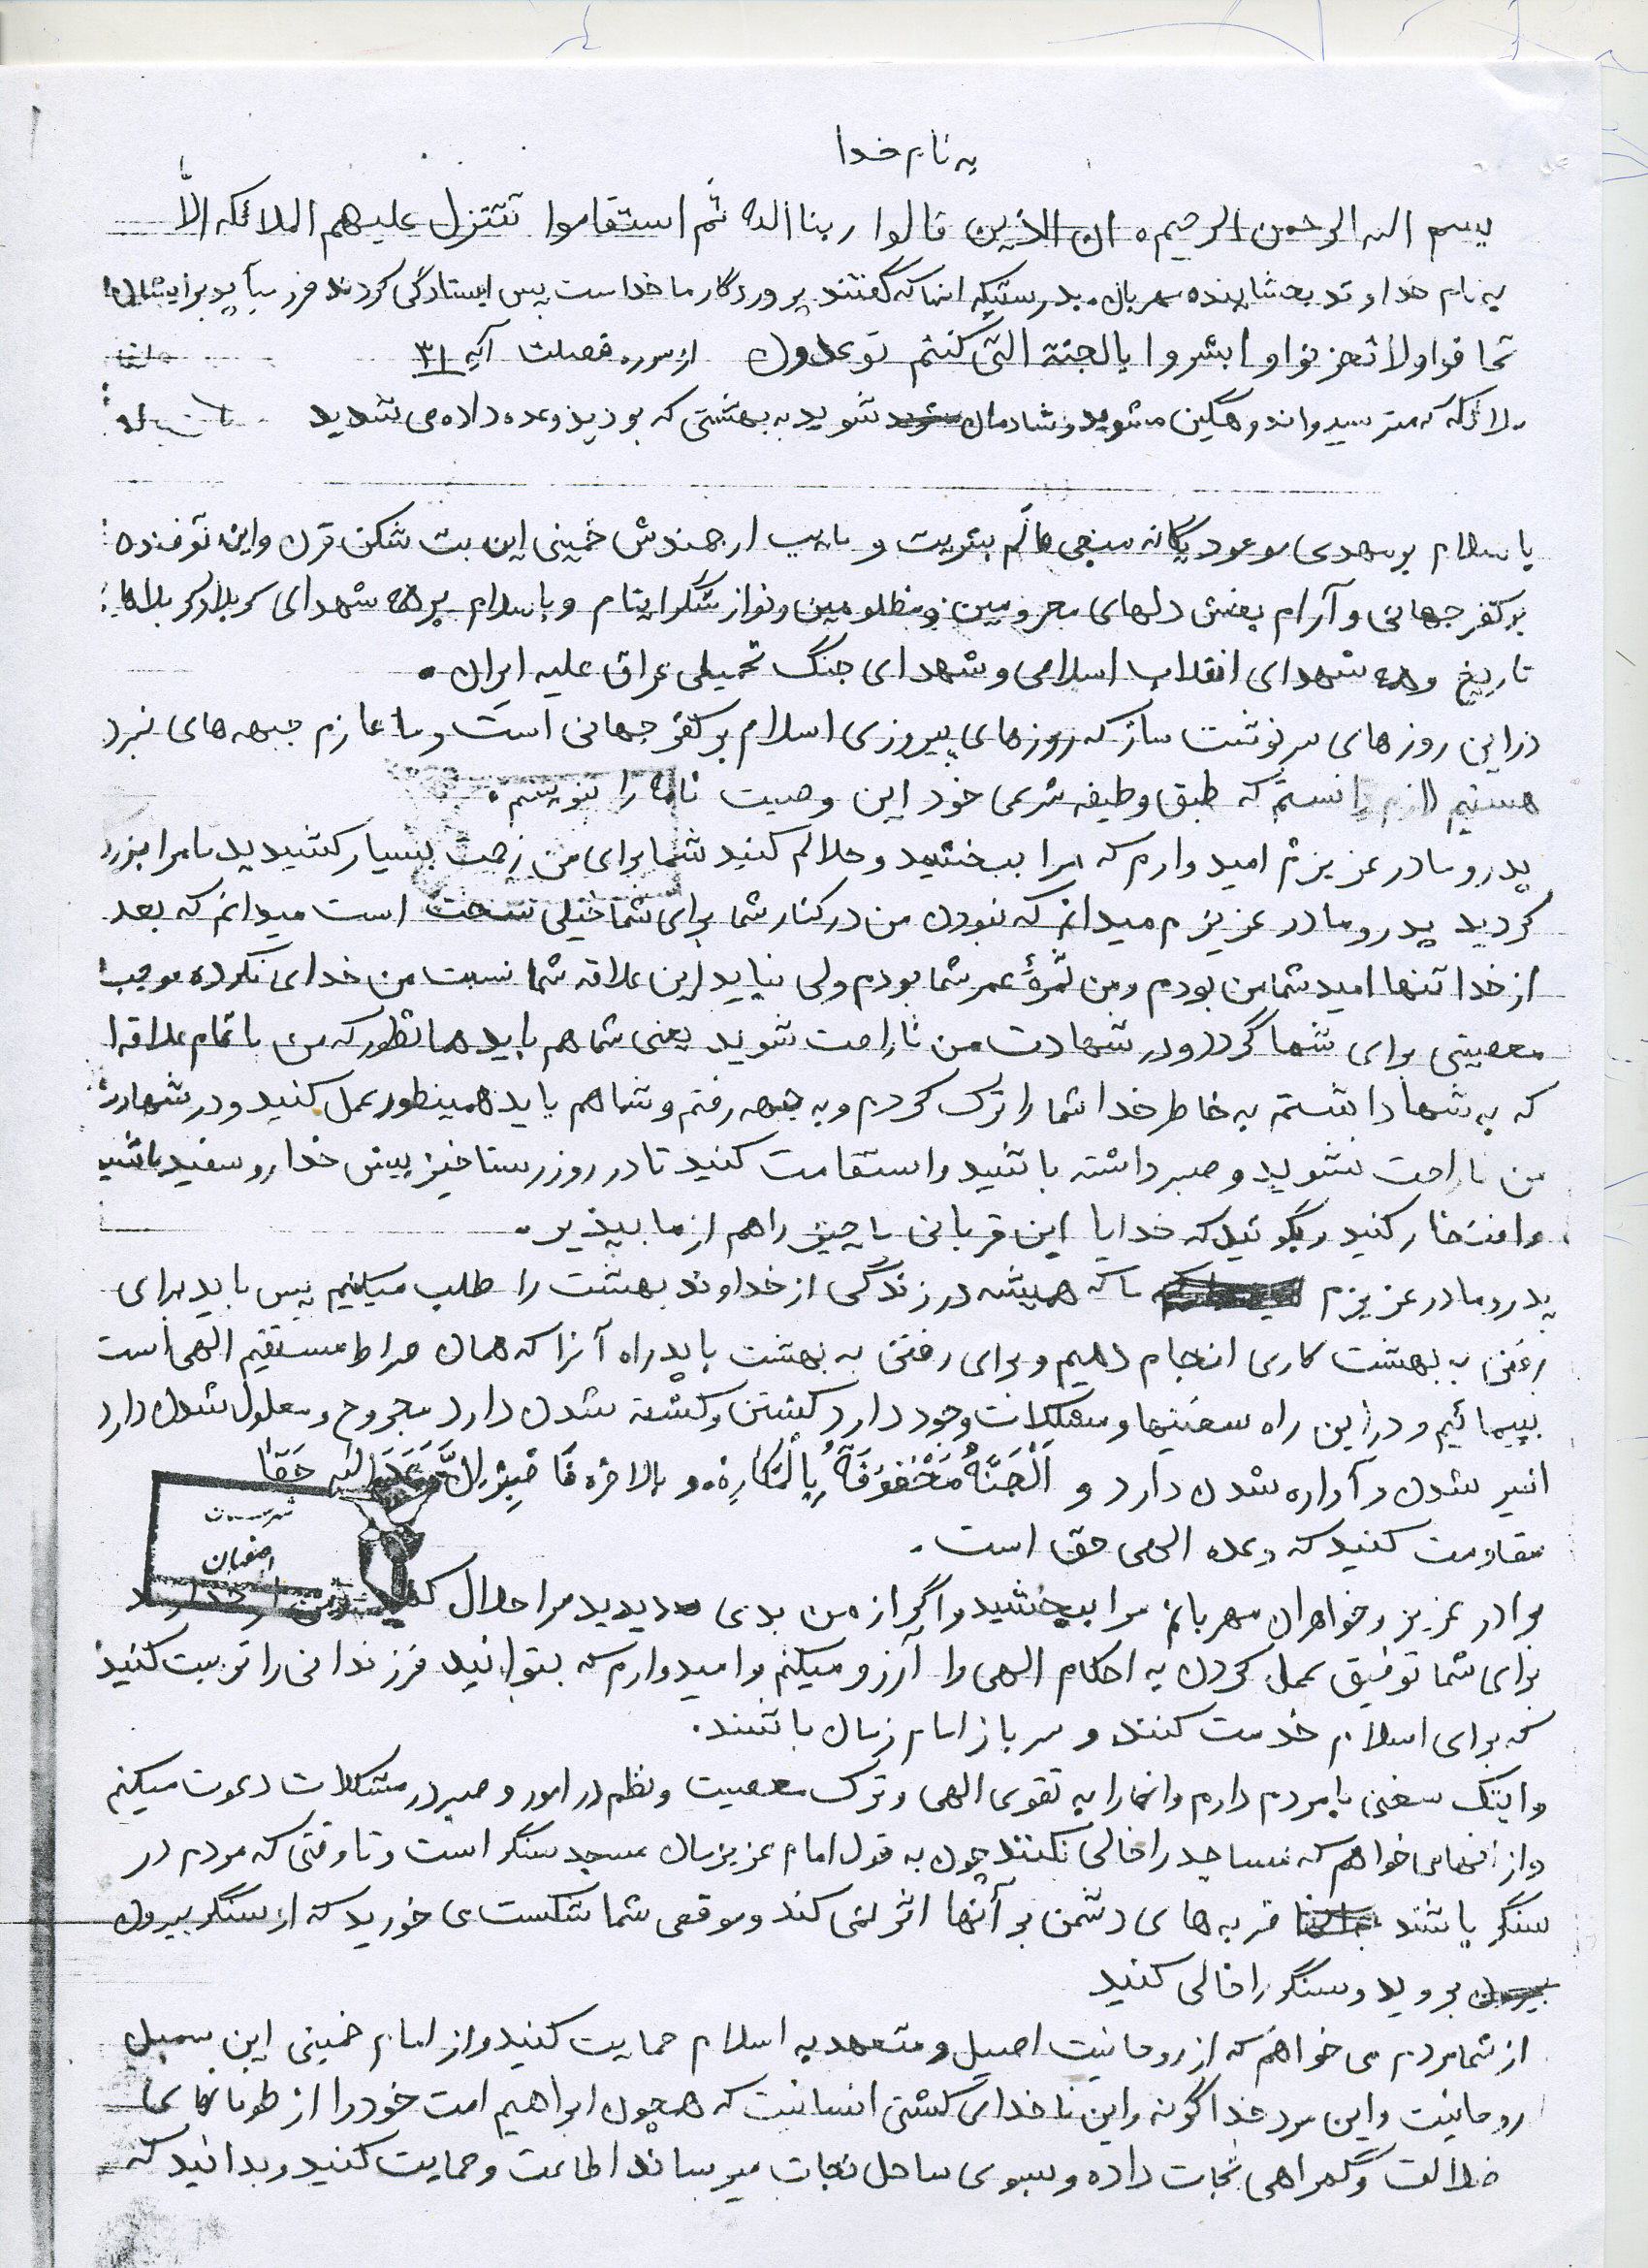 به نام خدا
بسم الله الرحمن الرحیم، ان الذین قالوا ربنا الله ثم استقاموا تتنزل علیهم الملائکه الاّ
به نام خداوند بخشاینده مهربان. بدرستیکه آنها که گفتند پروردگار ما خداست پس ایستادگی کردند فرود میآید برایشان
تخافوا ولا تحزنوا و ابشروا بالجنة التی کنتم توعدون از سوره فصلت آیه ۳۱
ملائکه که مترسید و اندوهگین مشوید و شادمان شوید به بهشتی که بودید وعده داده می شدید
با سلام بر مهدی موعود یگانه منجی عالم بشریت و نایب ارجمندش خمینی این بت شکن قرن و این توفنده
بر کفر جهانی و آرام بخش دلهای محرومین و مظلومین و نوازشگر ایتام و با سلام بر همه شهدای کربلا و کربلاهای
تاریخ و همه شهدای انقلاب اسلامی و شهدای جنگ تحمیلی عراق علیه ایران.
در این روزهای سرنوشت ساز که روزهای پیروزی اسلام بر کفر جهانی است و ما عازم جبهه های نبرد
هستیم لازم دانستم که طبق وظیفه شرعی خود این وصیت نامه را بنویسم.
پدر و مادر عزیزم امیدوارم که مرا ببخشید و حلالم کنید شما برای من زحمت بسیار کشیدید تا مرا بزرگ
کردید پدر و مادر عزیزم میدانم که نبودن من در کنار شما برای شما خیلی سخت است میدانم که بعد
از خدا تنها امید شما من بودم و من ثمرهٔ عمر شما بودم ولی نباید این علاقه شما نسبت من خدای نکرده موجب
معصیتی برای شما گردد و در شهادت من ناراحت شوید یعنی شما هم باید همانطور که من با تمام علاقه ا
که به شما داشتم به خاطر خدا شما را ترک کردم و به جبهه رفتم و شما هم باید همینطور عمل کنید و در شهادت
من ناراحت نشوید و صبر داشته باشید و استقامت کنید تا در روز رستاخیز پیش خدا رو سفید باشید
و افتخار کنید و بگوئید که خدایا این قربانی ناچیز را هم از ما بپذیر.
پدر و مادر عزیزم ما که همیشه در زندگی از خداوند بهشت را طلب میکنیم پس باید برای
رفتن به بهشت کاری انجام دهیم و برای رفتن به بهشت باید راه آنرا که همان صراط مستقیم الهی است
بپیمائیم و در این راه سختیها و مشکلات وجود دارد کشتن و کشته شدن دارد مجروح و معلول شدن دارد
اسیر شدن و آواره شدن دارد و اَلْجَنَّةُ مَحْفُوفَةٌ بِالْمَکارِه. و بالاخره فَاصْبِرْ اِنَّ وَعْدَ اللهِ حَقّا
شهرستان
اصفهان
مقاومت کنید که وعده الهی حق است.
برادر عزیز و خواهران مهربانم مرا ببخشید و اگر از من بدی دیدید مرا حلال کنید و من از خداوند
برای شما توفیق عمل کردن به احکام الهی را آرزو میکنم و امیدوارم که بتوانید فرزندانی را تربیت کنید
که برای اسلام خدمت کنند و سرباز امام زمان باشند.
و اینک سخنی با مردم دارم و آنها را به تقوی الهی و ترک معصیت و نظم در امور و صبر در مشکلات دعوت میکنم
و از آنها می خواهم که مساجد را خالی نکنند چون به قول امام عزیزمان مسجد سنگر است و تا وقتی که مردم در
سنگر باشند ضربه های دشمن بر آنها اثر نمی کند و موقعی شما شکست می خورید که از سنگر بیرون
بروید و سنگر را خالی کنید
از شما مردم می خواهم که از روحانیت اصیل و متعهد به اسلام حمایت کنید و از امام خمینی این سمبل
روحانیت و این مرد خداگونه و این ناخدای کشتی انسانیت که همچون ابراهیم امت خود را از طوفانهای
ضلالت و گمراهی نجات داده و بسوی ساحل نجات میرساند اطاعت و حمایت کنید و بدانید که